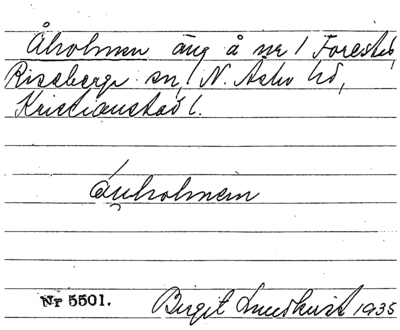 Åholmen äng å nr 1 Forestad,
Risseberga sn, N. Åsbo hd,
Kristianstad l.
åuholmein
Nr 5501.
Birgit Lundkvist 1935